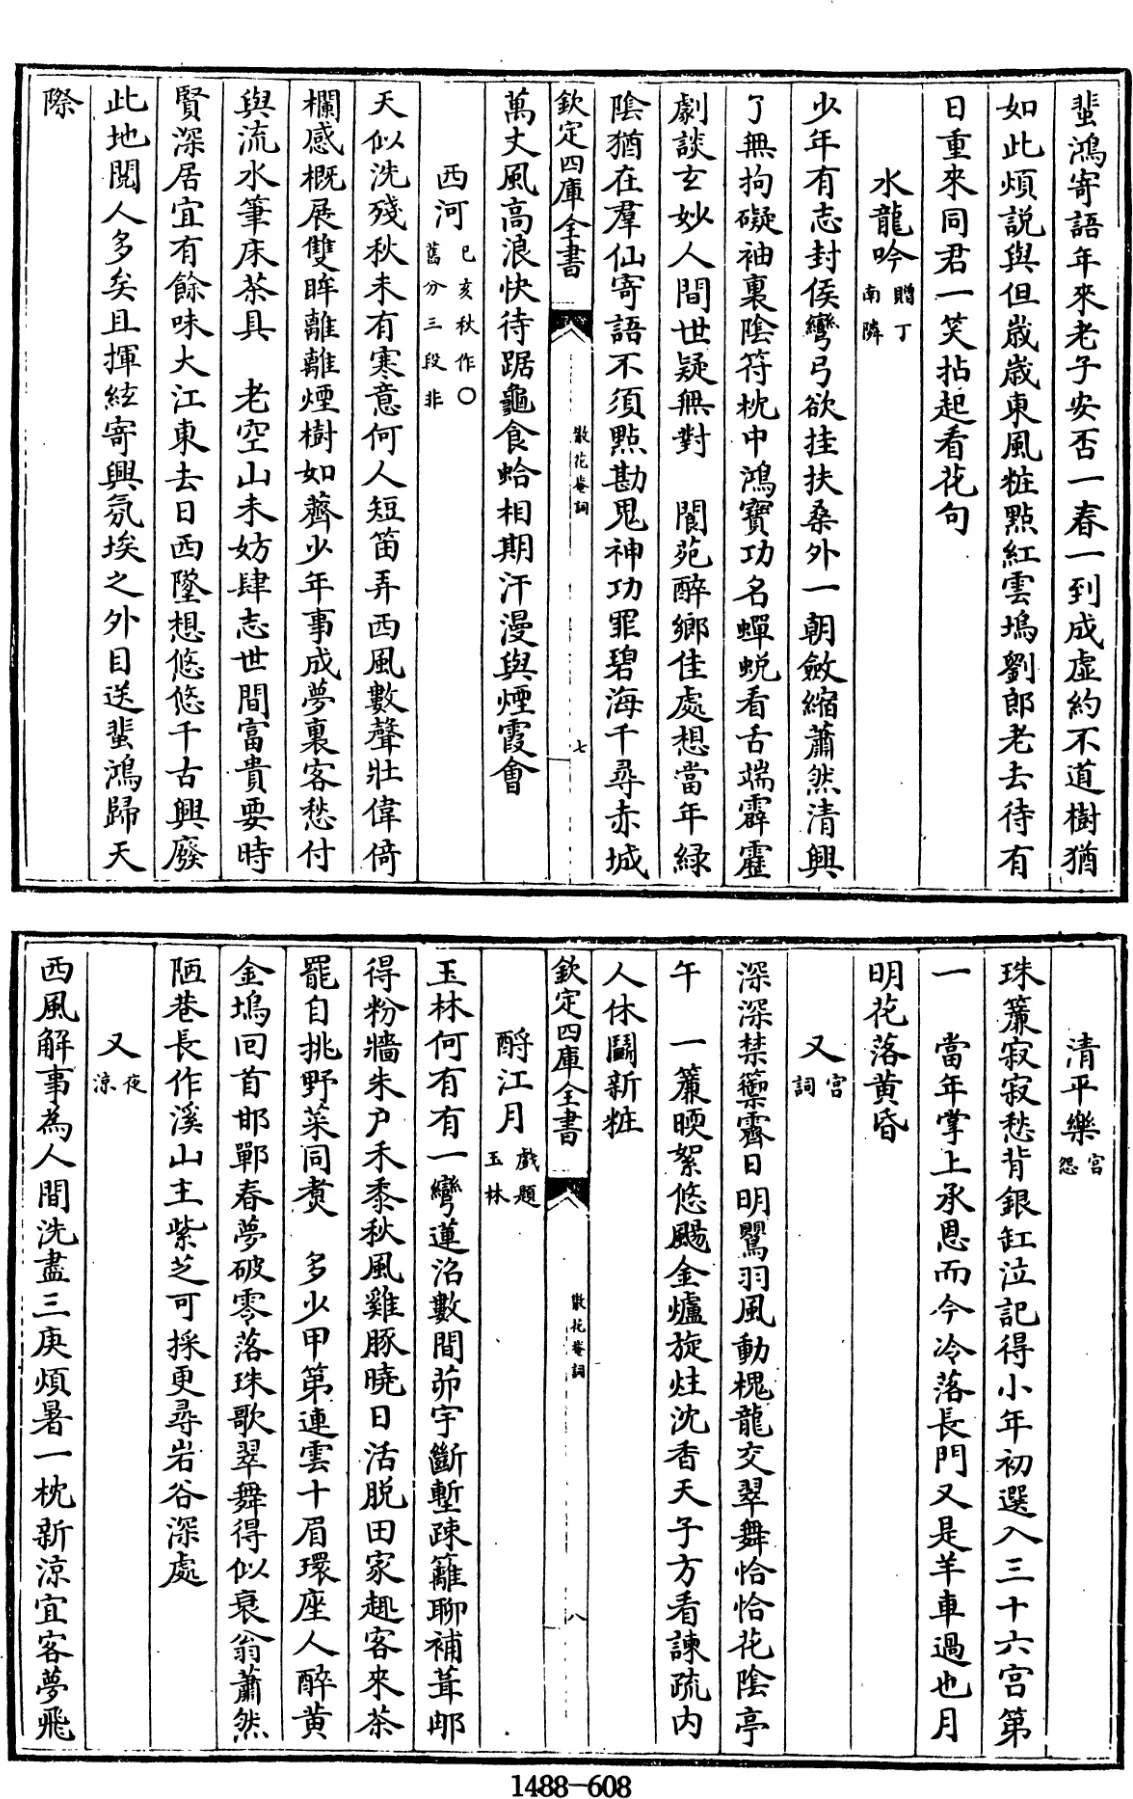 蜚鴻寄語年來老子安否一春一到成虛約不道樹猶
如此煩説與但歲歲東風粧點紅雲塢劉郎老去待有
日重來同君一笑拈起看花句
水龍吟贈丁南隣
少年有志封侯彎弓欲挂扶桑外一朝斂縮蕭然清興
了無拘礙袖裏陰符枕中鴻寶功名蟬蛻看舌端霹靂
劇談玄妙人間世疑無對　閬苑醉鄉佳處想當年緑
陰猶在羣仙寄語不須點勘鬼神功罪碧海千尋赤城
欽定四庫全書　散花菴詞　七
萬丈風高浪快待踞龜食蛤相期汗漫與煙霞會
西河已亥秋作○舊分三段非
天似洗殘秋未有寒意何人短笛弄西風數聲壯偉倚
欄感概展雙眸離離煙樹如薺少年事成夢裏客愁付
與流水筆床茶具　老空山未妨肆志世間富貴要時
賢深居宜有餘味大江東去日西墜想悠悠千古興廢
此地閱人多矣且揮絃寄興氛埃之外目送蜚鴻歸天
際
清平樂宮怨
珠簾寂寂愁背銀缸泣記得小年初選入三十六宮第
一　當年掌上承恩而今冷落長門又是羊車過也月
明花落黄昏
又宮詞
深深禁籞霽日明鶯羽風動槐龍交翠舞恰恰花陰亭
午　一簾暖絮悠颺金爐旋炷沈香天子方看諫疏内
人休鬭新粧
欽定四庫全書　散花菴詞　八
酹江月戲題玉林
玉林何有有一彎蓮沼數間茆宇斷塹疎籬聊補葺那
得粉牆朱户禾黍秋風雞豚曉日活脱田家趣客來茶
罷自挑野菜同煑　多少甲第連雲十眉環座人醉黄
金塢回首邯鄲春夢破零落珠歌翠舞得似衰翁蕭然
陋巷長作溪山主紫芝可採更尋岩谷深處
又夜涼
西風解事為人間洗盡三庚煩暑一枕新涼宜客夢飛
1488—608